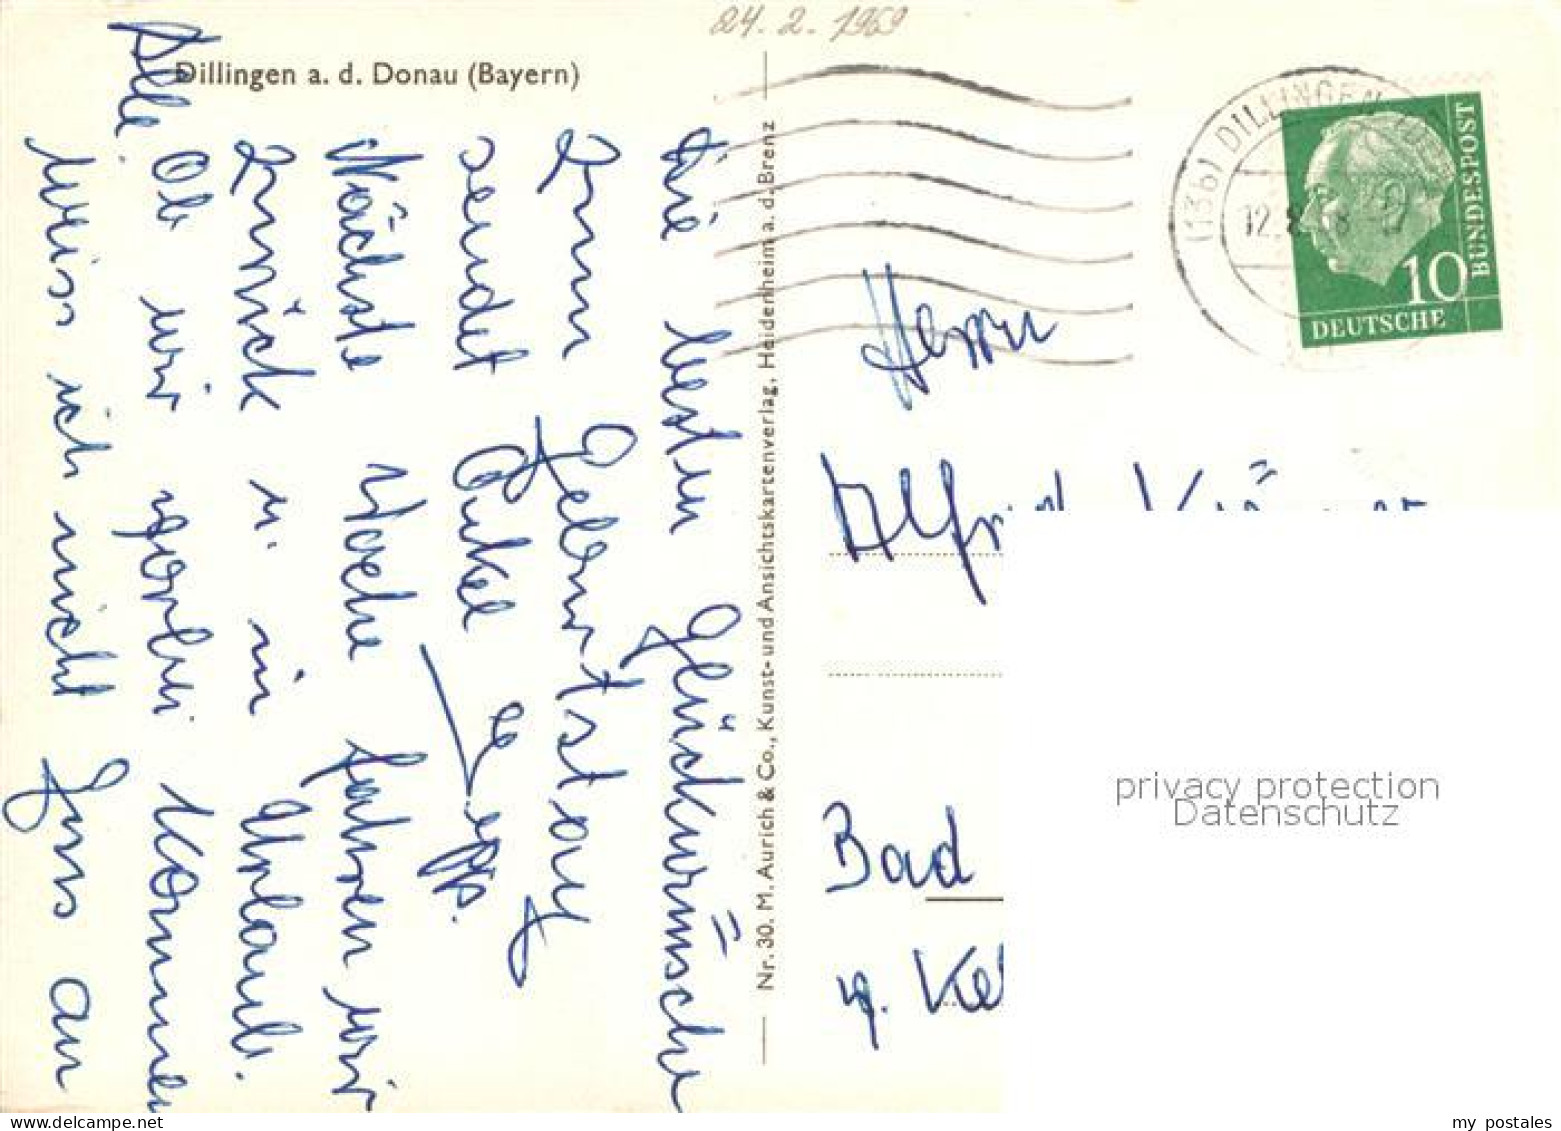 24. 2. 1969
Dillingen a. d. Donau (Bayern)
Die besten Glückwünsche
zum Geburtstag
sendet Onkel
Nächste Woche fahren wir
zurück u. in Urlaub.
Ob wir vorbei kommen
weiss ich nicht Gruss an
Alle
Nr. 30. M. Aurich & Co., Kunst- und Ansichtskartenverlag, Heidenheim a. d. Brenz
(13b) DILLINGEN
12.
10
BUNDESPOST
DEUTSCHE
Herrn
Alfred
Bad
privacy protection
Datenschutz
my postales